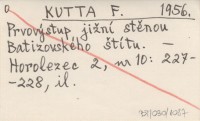 KUTTA F. 1956.
Prvovýstup jižní stěnou
Batizovského štítu. —
Horolezec 2, nr 10: 227-
-228, il.